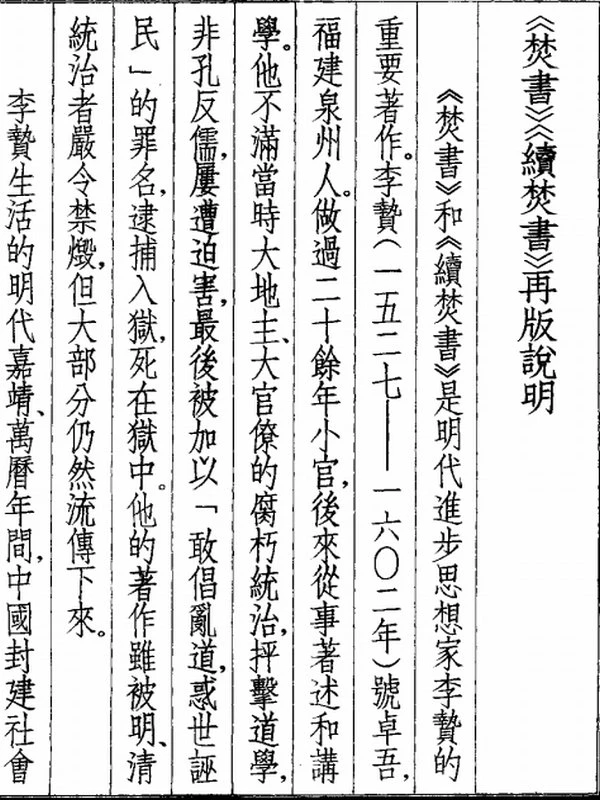 《焚書》《續焚書》再版說明
《焚書》和《續焚書》是明代進步思想家李贄的
重要著作。李贄（一五二七——一六〇二年）號卓吾，
福建泉州人。做過二十餘年小官，後來從事著述和講
學。他不滿當時大地主、大官僚的腐朽統治，抨擊道學，
非孔反儒，屢遭迫害，最後被加以「敢倡亂道，惑世誣
民」的罪名，逮捕入獄，死在獄中。他的著作雖被明、清
統治者嚴令禁燬，但大部分仍然流傳下來。
李贄生活的明代嘉靖、萬曆年間，中國封建社會